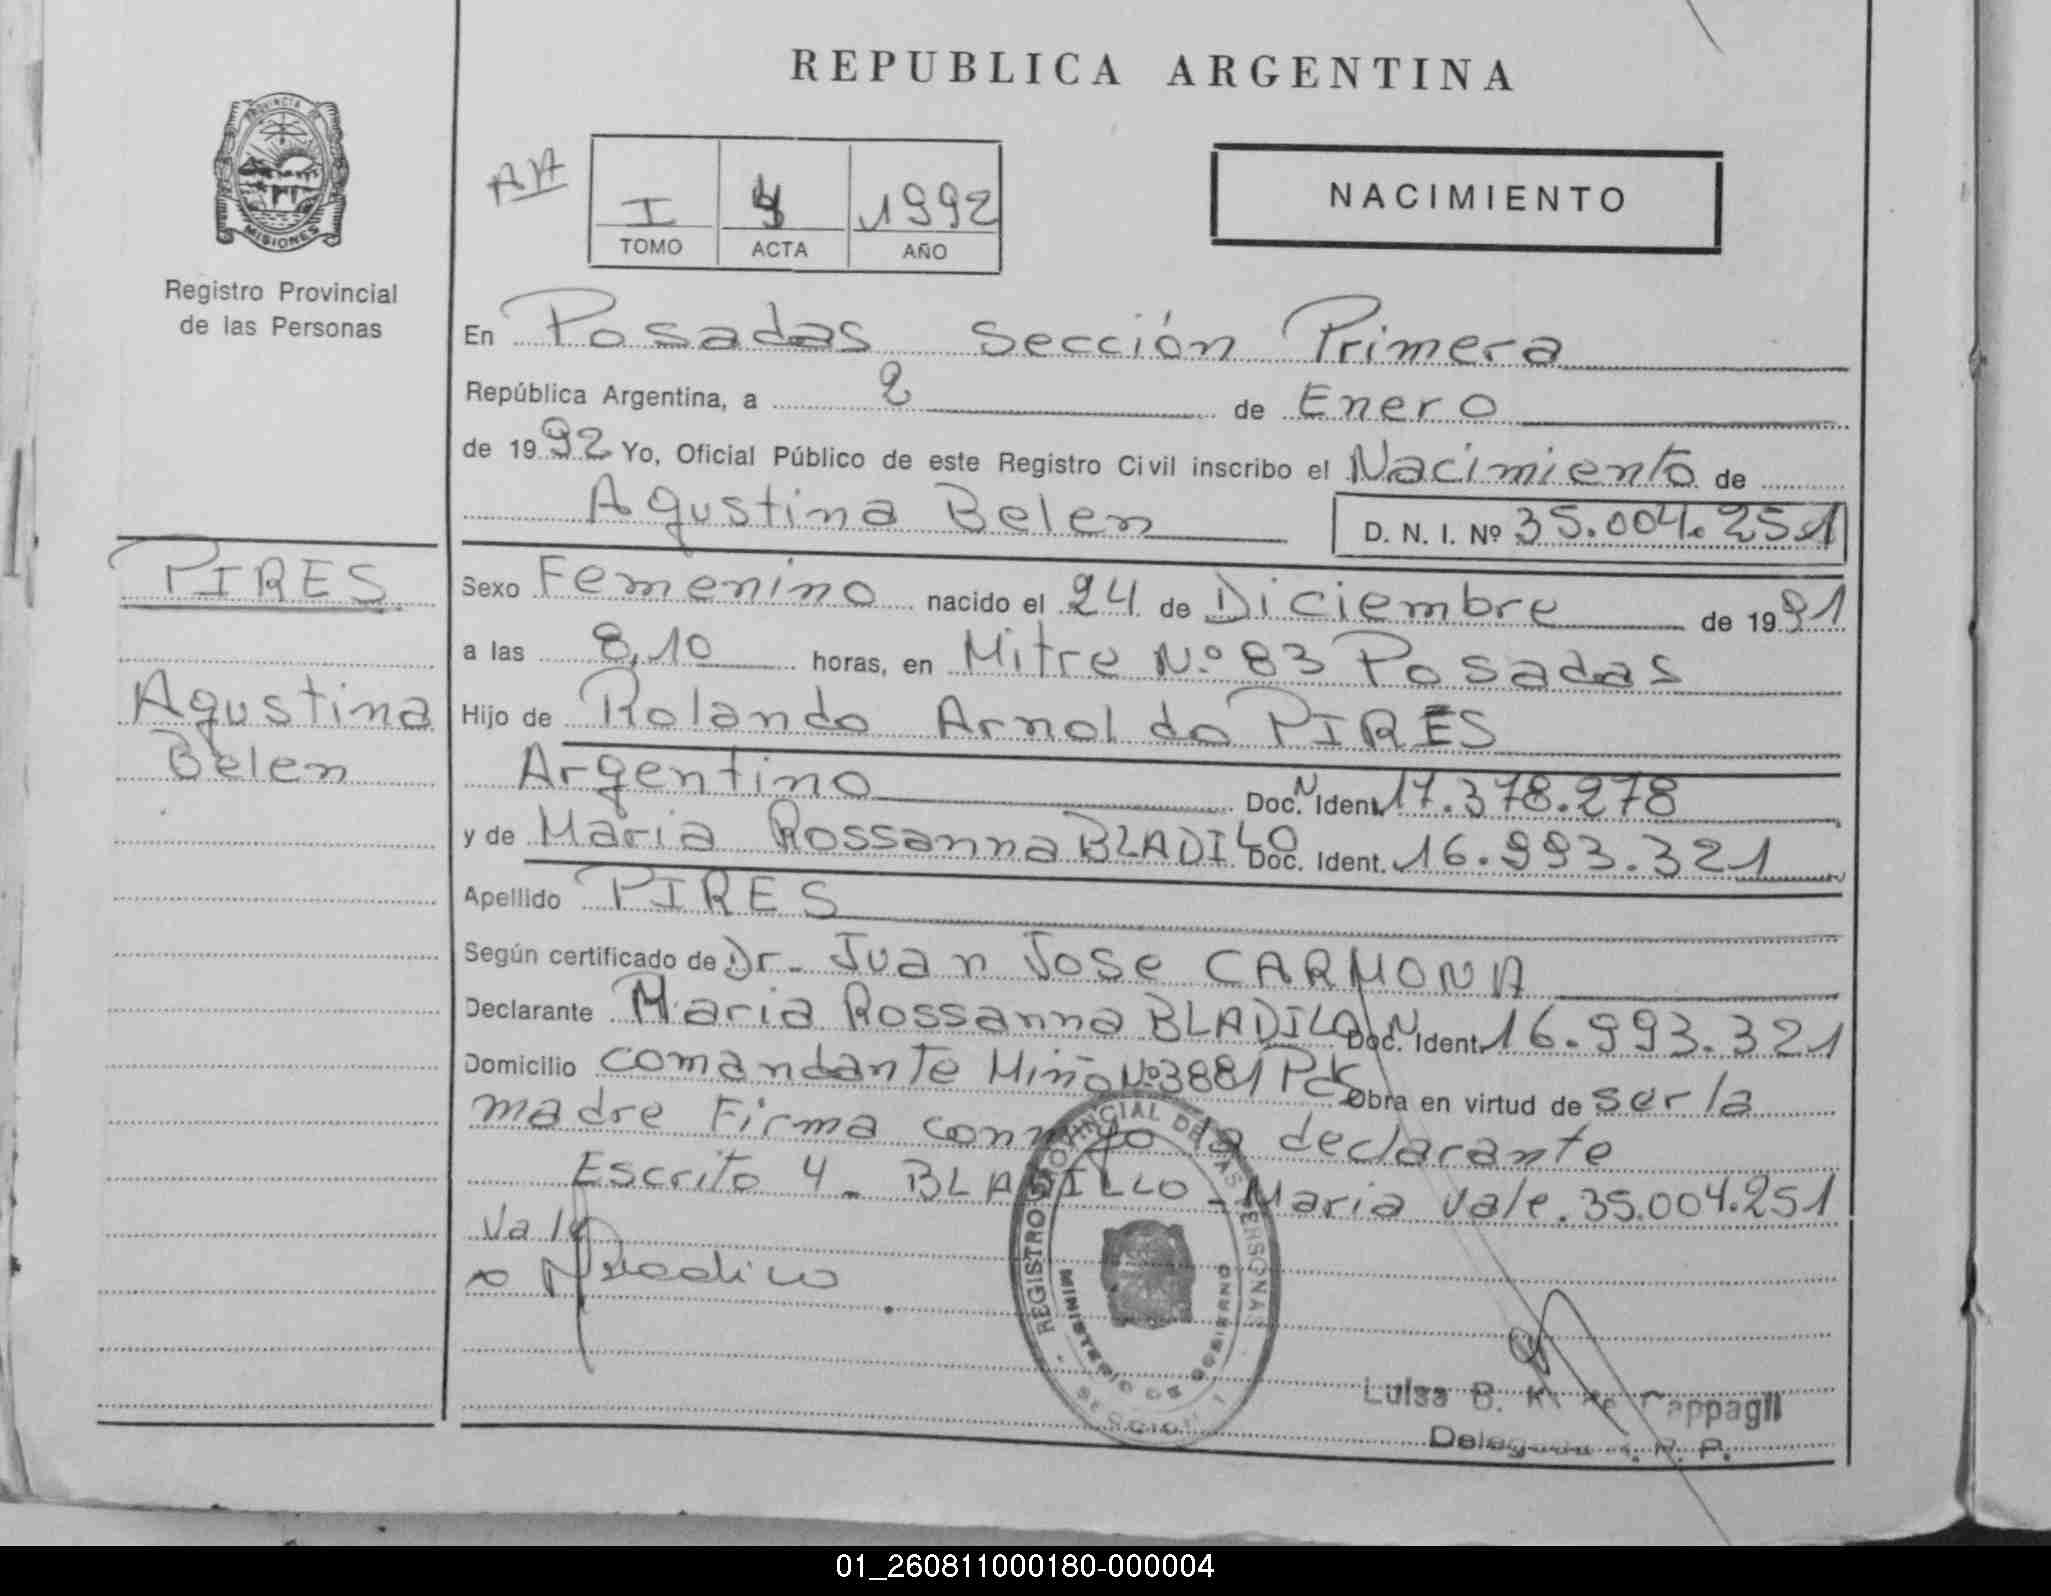 REPUBLICA ARGENTINA
PROVINCIA DE
MISIONES
Registro Provincial
de las Personas
I 4 1992
TOMO ACTA AÑO
NACIMIENTO
En Posadas Sección Primera
República Argentina, a 2 de Enero
de 1992 Yo, Oficial Público de este Registro Civil inscribo el Nacimiento de
Agustina Belen D. N. I. Nº 35.004.251
PIRES
Agustina
Belen
Sexo Femenino nacido el 24 de Diciembre de 1991
a las 8,10 horas, en Mitre N.º 83 Posadas
Hijo de Rolando Arnoldo PIRES
Argentino Doc. N Ident. 17.378.278
y de Maria Rossanna BLADILO Doc. Ident. 16.993.321
Apellido PIRES
Según certificado de Dr. Juan Jose CARMONA
Declarante Maria Rossanna BLADILO Doc. N Ident. 16.993.321
Domicilio comandante Miño Nº 3881 Pdas Obra en virtud de ser la
madre Firma conmigo la declarante
Escrito 4 - BLADILLO - Maria vale. 35.004.251
Vale
REGISTRO PROVINCIAL DE LAS PERSONAS
MINISTERIO DE GOBIERNO
SECCION 1
Luisa B. K. de Cappagli
Delegada R. P.
01_260811000180-000004